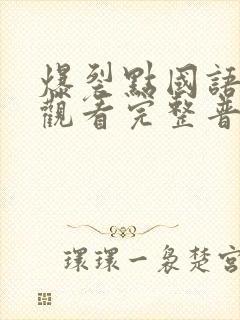 爆裂點國語
觀看完整普
環環一裊楚宮